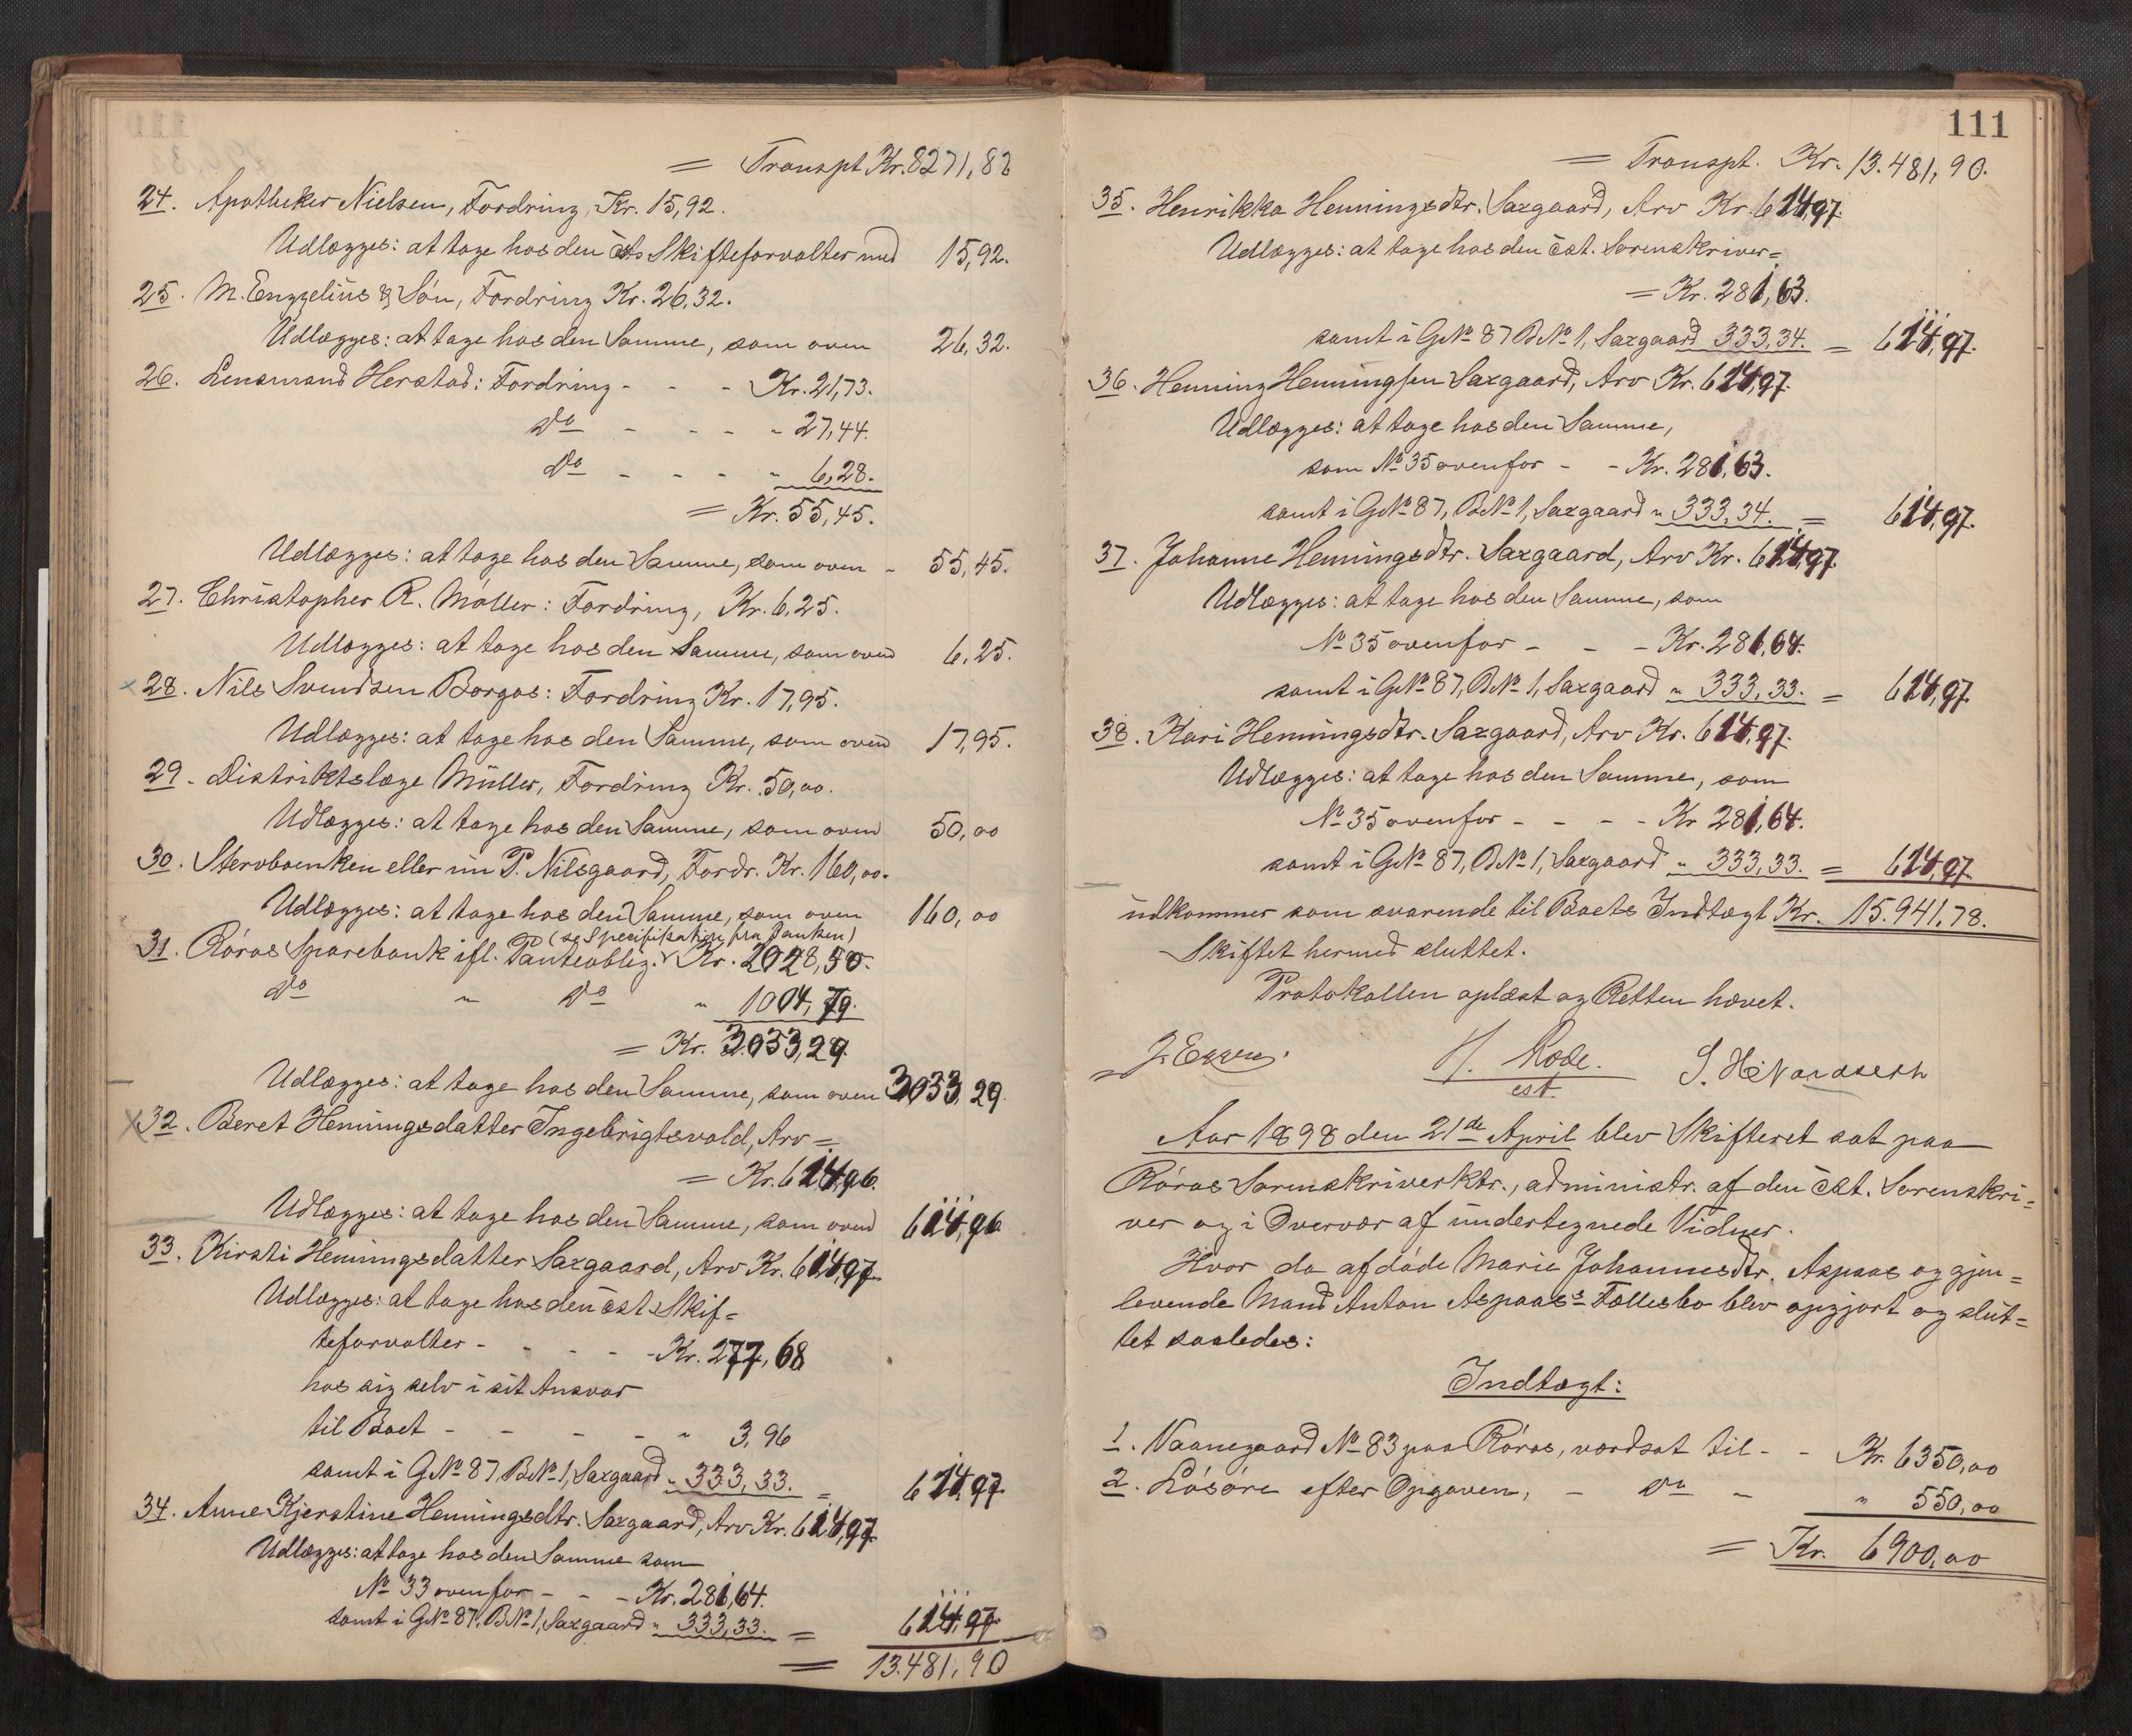 = Transpt Kr. 8271,82
24. Apotheker Nielsen, Fordring, Kr. 15,92.
Udlægges: at tage hos den cst. Skifteforvalter med 15,92.
25. M. Engzelius & Søn, Fordring Kr. 26,32.
Udlægges: at tage hos den Samme, som oven 26,32.
26. Lensmand Herstad: Fordring - - - Kr. 21,73.
do - - - - " 27,44.
do - - - - " 6,28.
= Kr. 55,45.
Udlægges: at tage hos den Samme, som oven - 55,45.
27. Christopher R. Möller: Fordring, Kr. 6,25.
Udlægges: at tage hos den Samme, som oven 6,25.
28. Nils Svendsen Borgos: Fordring Kr. 17,95.
Udlægges: at tage hos den Samme, som oven 17,95.
29. Distriktslæge Müller, Fordring Kr. 50,00.
Udlægges: at tage hos den Samme, som oven 50,00
30. Stervboenken eller nu P. Nilsgaard, Fordr. Kr. 160,00.
Udlægges: at tage hos den Samme, som oven 160,00
(se Specifikation fra Banken)
31. Röros Sparebank ifl. Panteoblig. Kr. 2028,50.
do " do " 1004,79.
= Kr. 3033,29.
Udlægges: at tage hos den Samme, som oven 3033,29.
32. Beret Henningsdatter Ingebrigtsvold, Arv =
= Kr. 614,96.
Udlægges: at tage hos den Samme, som oven 614,96
33. Kirsti Henningsdatter Saxgaard, Arv Kr. 614,97.
Udlægges: at tage hos den cst. Skif=
teforvalter - - - - - Kr. 277,68
hos sig selv i sit Ansvar
til Boet - - - - - " 3,96
samt i GNo 87, BNo 1, Saxgaard " 333,33. = 614,97.
34. Anne Kjerstine Henningsdtr. Saxgaard, Arv Kr. 614,97.
Udlægges: at tage hos den Samme som
No 33 ovenfor - - - Kr. 281,64.
samt i GNo 87, BNo 1, Saxgaard " 333,33. = 614,97.
= 13.481,90
111
= Transpt. Kr. 13.481,90.
35. Henrikka Henningsdtr. Saxgaard, Arv Kr. 614,97.
Udlægges: at tage hos den cst. Sorenskriver=
= Kr. 281,63.
samt i GNo 87 BNo 1, Saxgaard 333,34. = 614,97.
36. Henning Henningsen Saxgaard, Arv Kr. 614,97.
Udlægges: at tage hos den Samme,
som No 35 ovenfor - - Kr. 281,63.
samt i GNo 87, BNo 1, Saxgaard " 333,34. = 614,97.
37. Johanne Henningsdtr. Saxgaard, Arv Kr. 614,97.
Udlægges: at tage hos den Samme, som
No 35 ovenfor - - - Kr. 281,64.
samt i GNo 87, BNo 1, Saxgaard " 333,33. = 614,97.
38. Kari Henningsdtr. Saxgaard, Arv Kr. 614,97.
Udlægges: at tage hos den Samme, som
No 35 ovenfor - - - - Kr 281,64.
samt i GNo 87, BNo 1, Saxgaard " 333,33. = 614,97.
udkommer som svarende til Boets Indtægt Kr. 15.941,78.
Skiftet hermed sluttet.
Protokollen oplæst og Retten hævet.
H. Rode.
cst.
Aar 1898 den 21de April blev Skifteret sat paa
Röros Sorenskriverktr., administr. af den cst. Sorenskri=
ver og i Overvær af undertegnede Vidner.
Hvor da afdøde Marie Johannesdtr. Aspaas og gjen=
levende Mand Anton Aspaas's Fællesbo blev opgjort og slut=
tet saaledes:
Indtægt:
1. Vaanegaard No 83 paa Röros, værdsat til - - Kr. 6350,00
2. Løsøre efter Opgaven, - do - " 550,00
= Kr. 6900,00